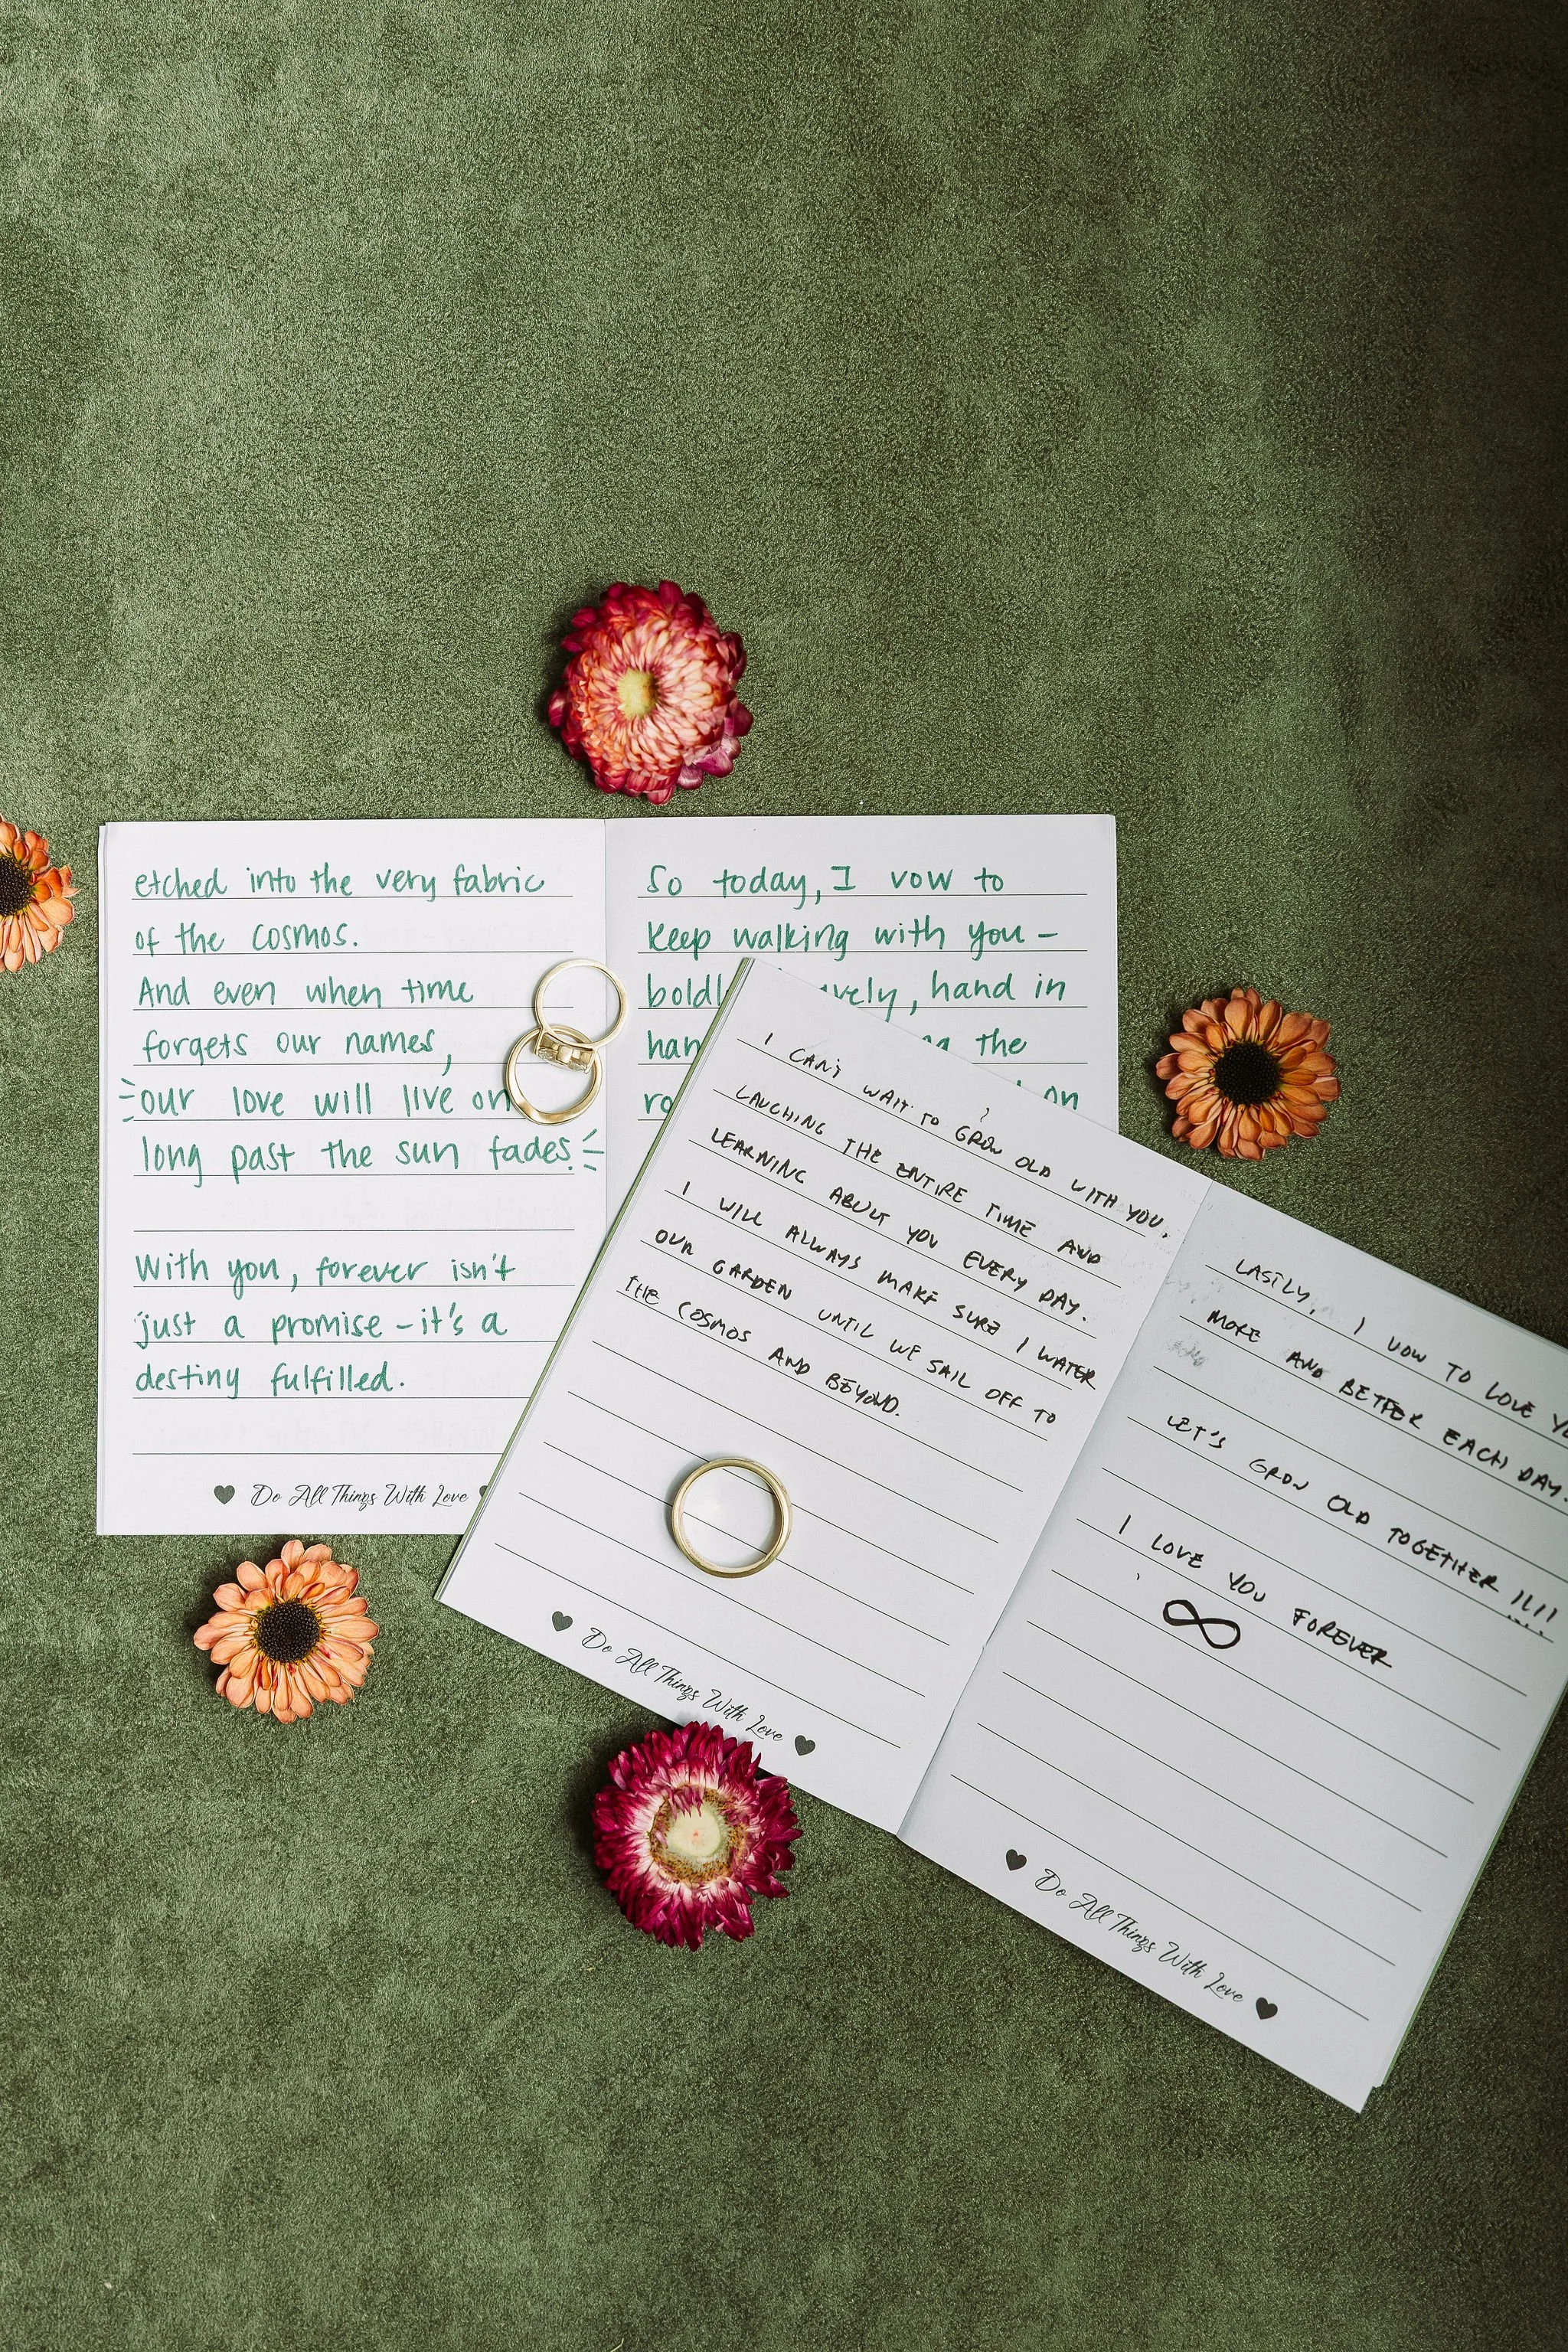 etched into the very fabric
of the cosmos.
And even when time
forgets our names,
our love will live on
long past the sun fades.
With you, forever isn't
just a promise – it's a
destiny fulfilled.
Do All Things With Love
So today, I vow to
keep walking with you –
hand in
the
on
I CAN'T WAIT TO GROW OLD WITH YOU.
LAUGHING THE ENTIRE TIME AND
LEARNING ABOUT YOU EVERY DAY.
I WILL ALWAYS MAKE SURE I WATER
OUR GARDEN UNTIL WE SAIL OFF TO
THE COSMOS AND BEYOND.
Do All Things With Love
LASTLY, I VOW TO LOVE
MORE AND BETTER EACH DAY.
LET'S GROW OLD TOGETHER !!!!
I LOVE YOU FOREVER
∞
Do All Things With Love